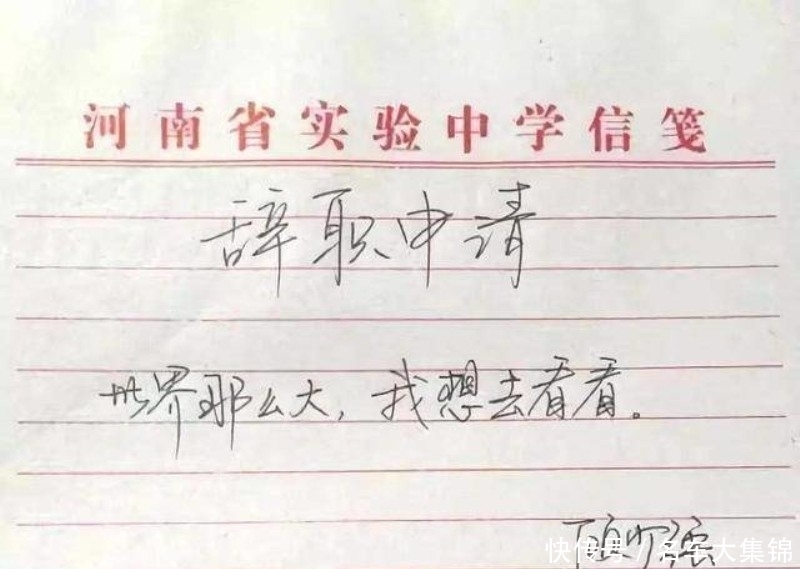 河南省实验中学信笺
辞职申请
世界那么大，我想去看看。
快传号/名车大集锦